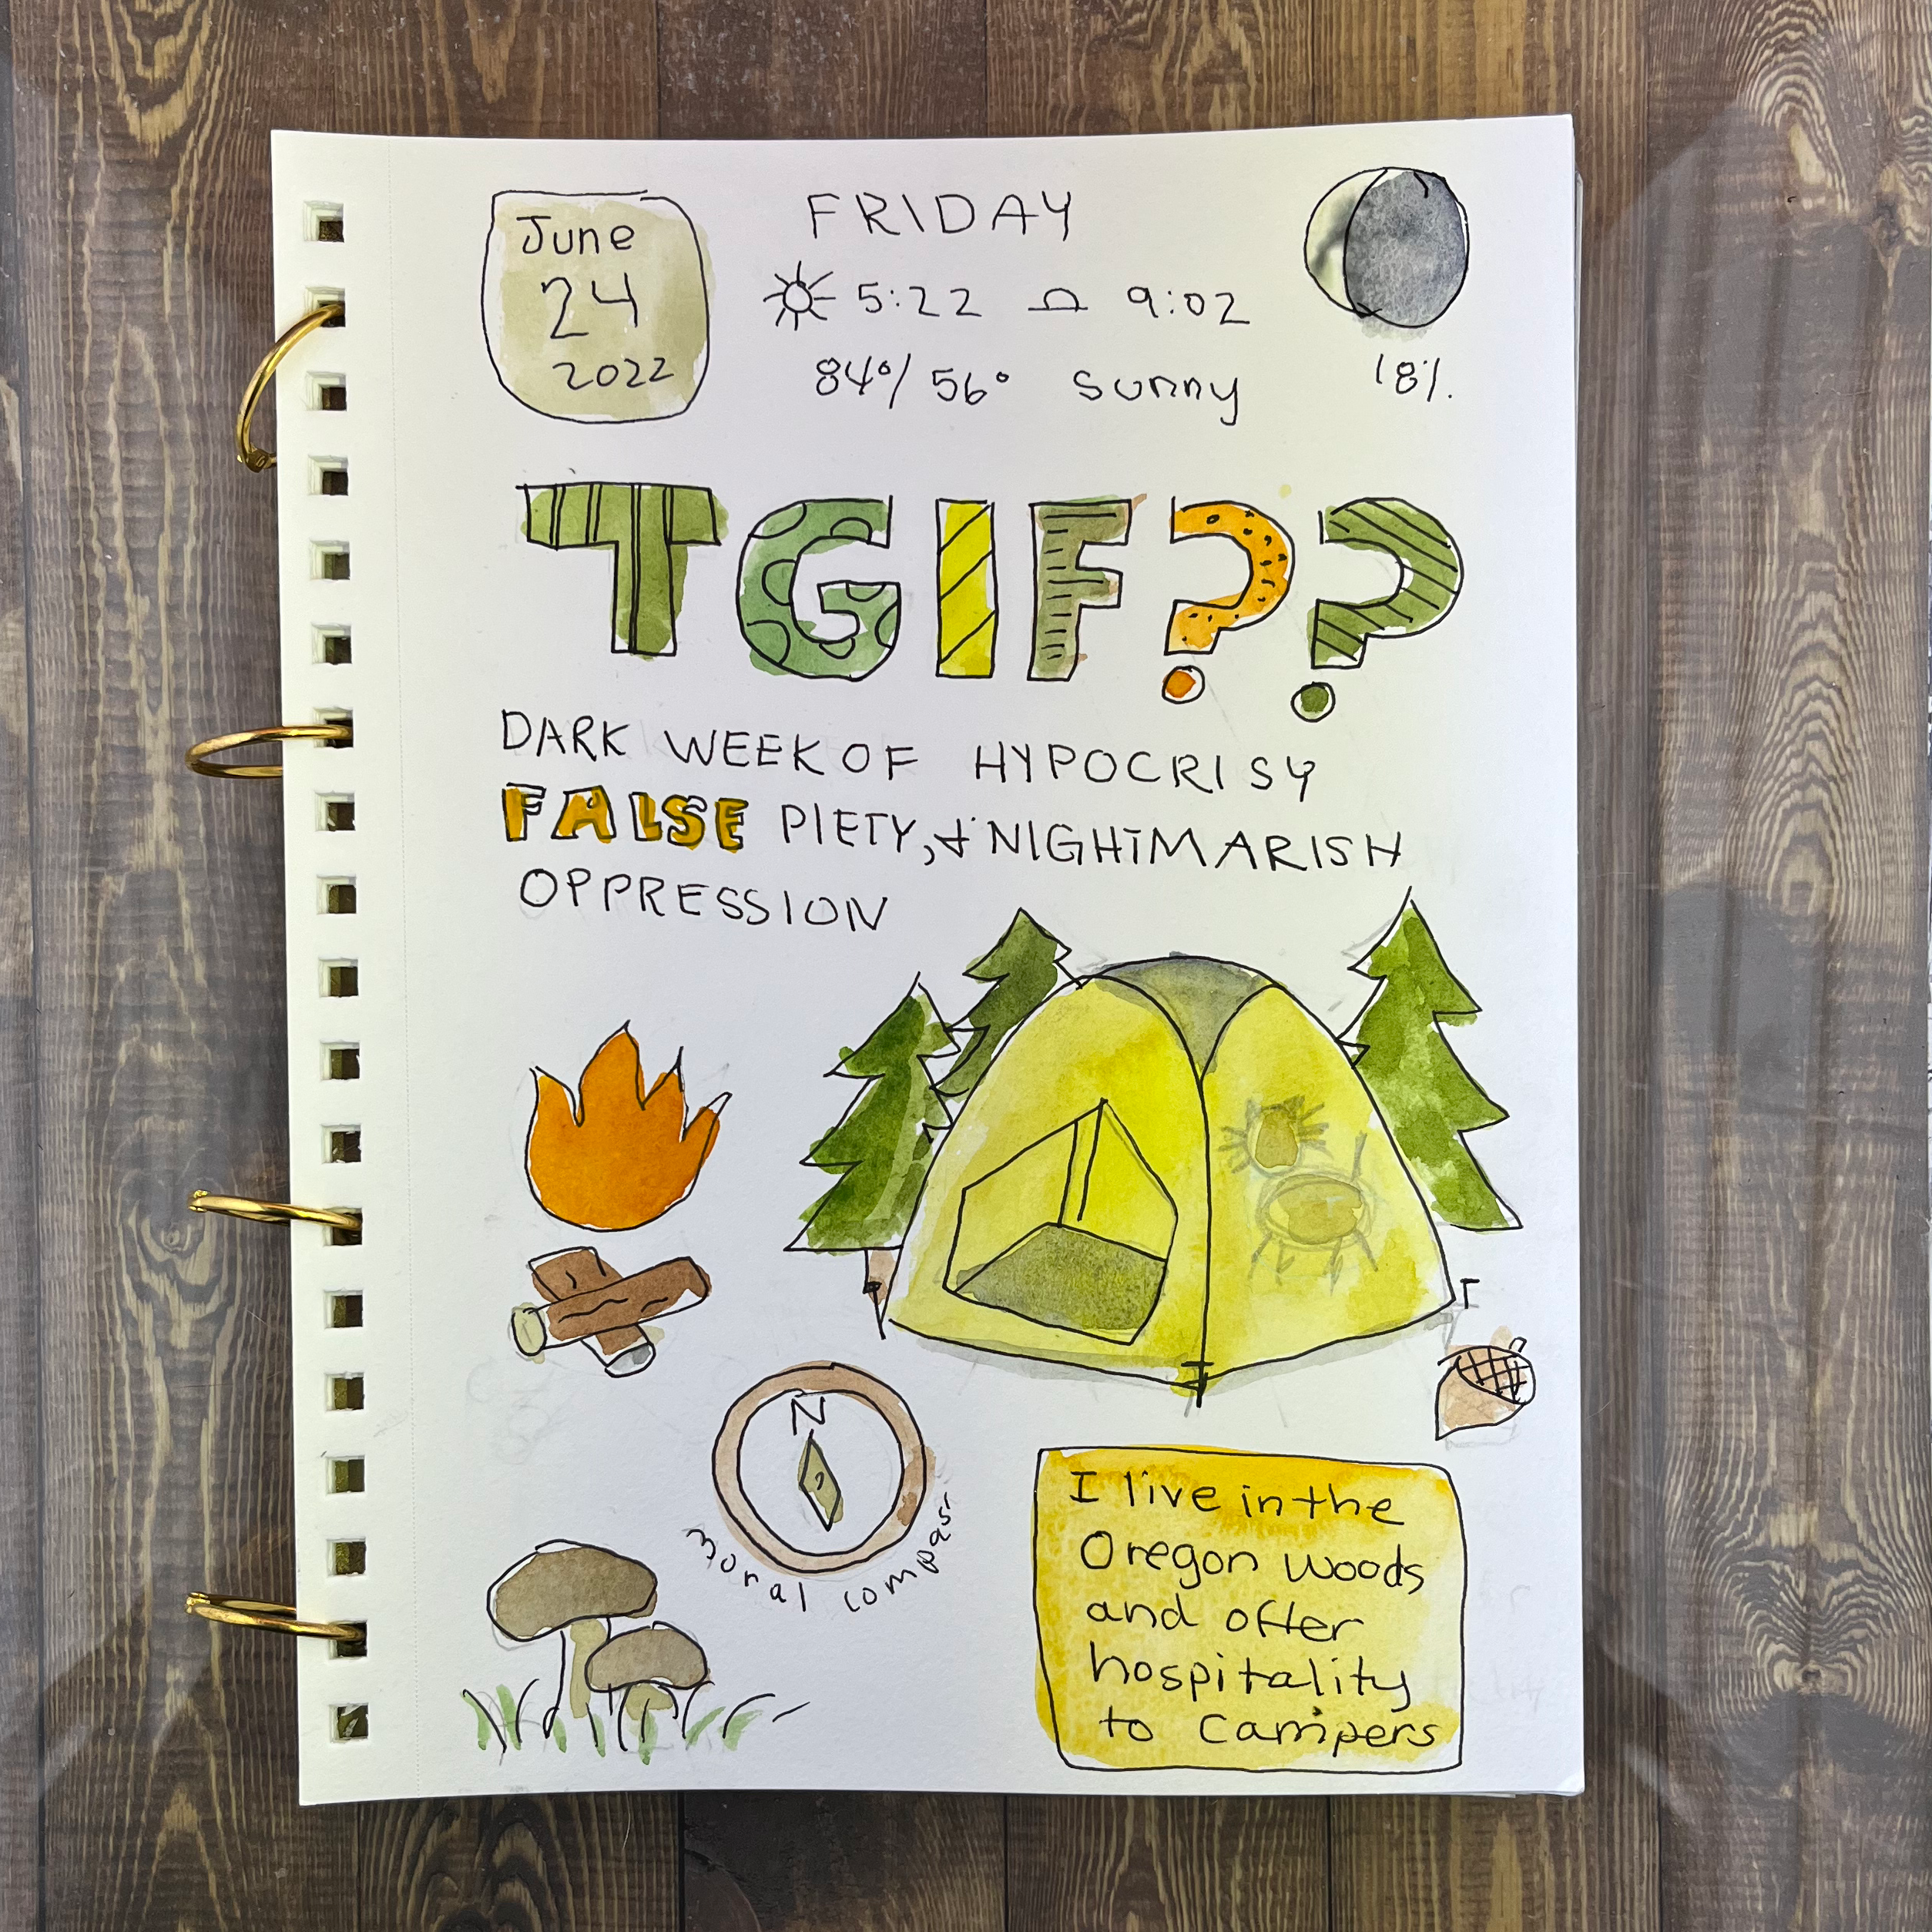 June
24
2022
FRIDAY
5:22 9:02
84°/56° sunny
18%
TGIF??
DARK WEEK OF HYPOCRISY
FALSE PIETY, & NIGHTMARISH
OPPRESSION
N
moral compass
I live in the
Oregon woods
and offer
hospitality
to campers